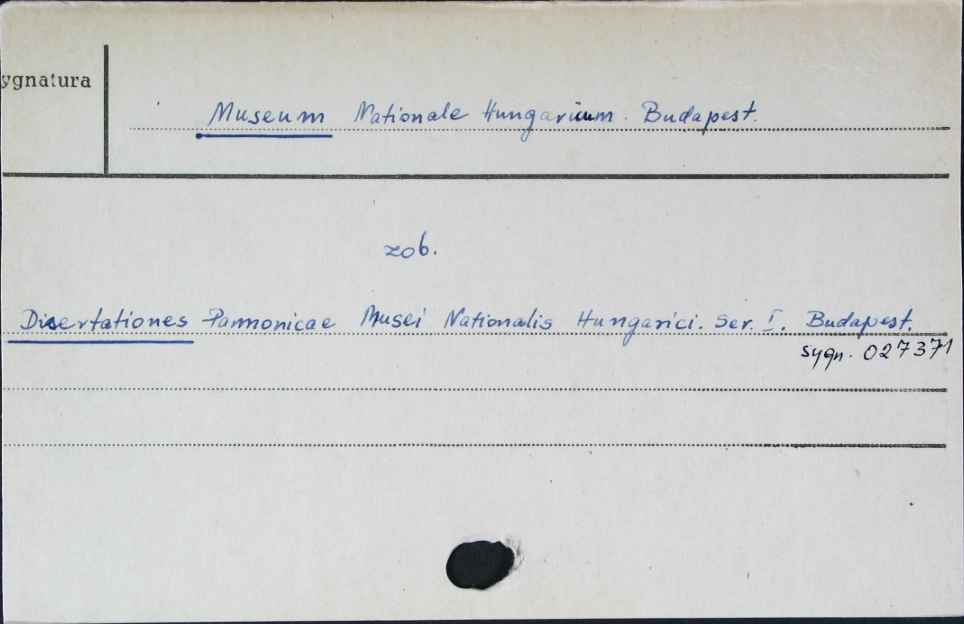 ygnatura
Museum Nationale Hungaricum. Budapest.
zob.
Disertationes Pannonicae Musei Nationalis Hungarici. Ser. I. Budapest.
sygn. 027371